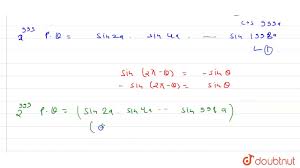 cos 999a
2^999 P.Q = sin2a . sin4a ... sin 1998a
①
sin (2π-θ) = -sinθ
- sin (2π-θ) = sinθ
2^999 P.Q = (sin2a . sin4a ... sin 998a)
(
doubtnut